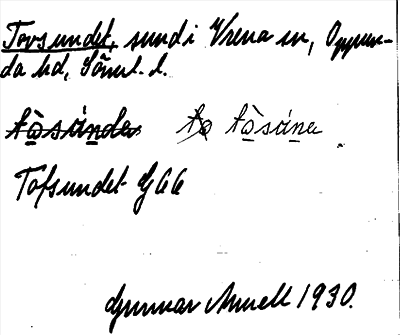 Tovsundet, sund i Vrena sn, Oppun-
da hd, Söml. l.
tò̲sún̲da tò̲sún̲a
Tofsundet G66
Gunnar Annell 1930.